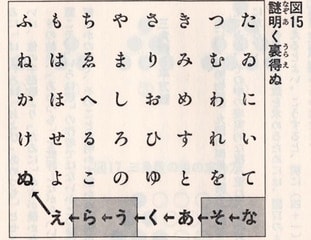 図15
謎明く裏得ぬ
なぞあ うらえ
たゐにいてな
つむわれをそ
きみめすとあ
さりおひゆく
やましろのう
ちゑへるこら
もはほせよえ
ふねかけぬ